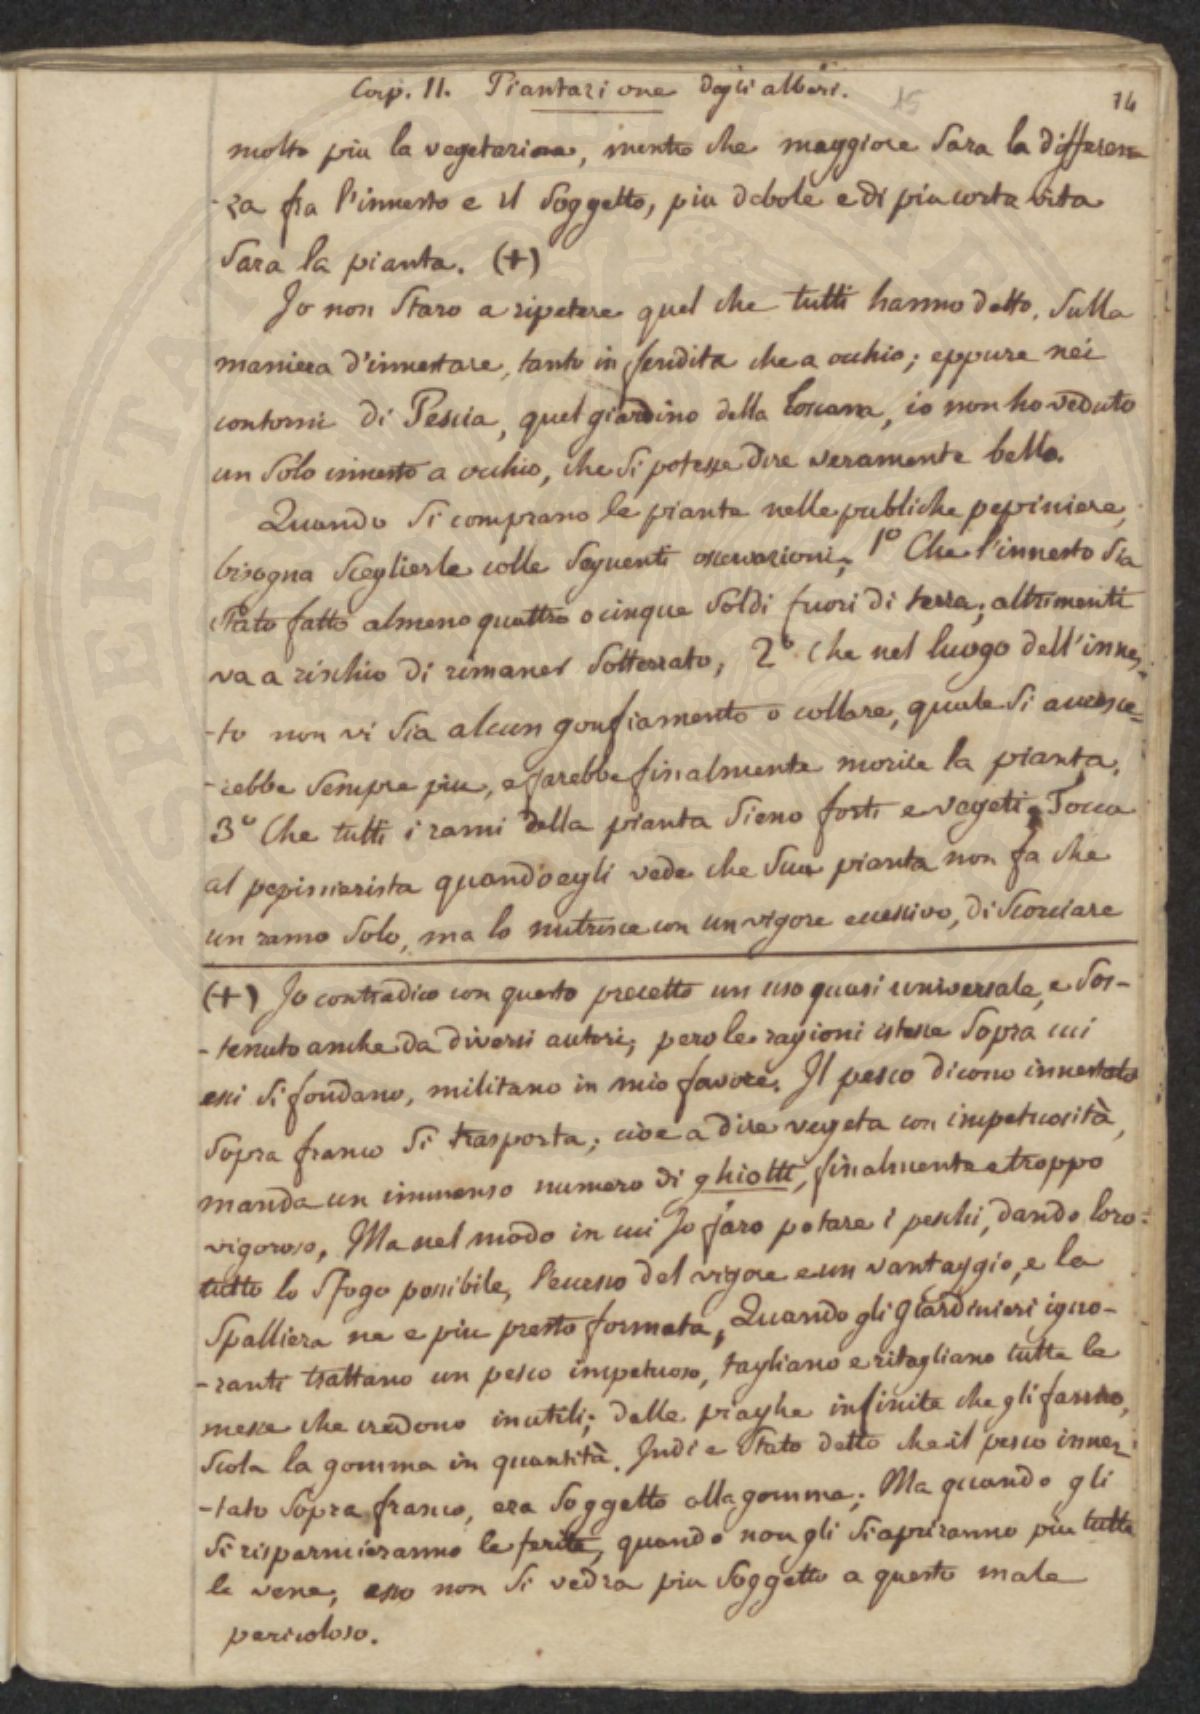 Cap. II. Piantazione degli alberi.
15
14
molto piu la vegetazione, mentre che maggiore sara la differen-
-za fra l'innesto e il soggetto, piu debole e di piu corta vita
sara la pianta. (+)
Jo non staro a ripetere quel che tutti hanno detto, sulla
maniera d'innestare, tanto in fendita che a occhio; eppure nei
contorni di Pescia, quel giardino della Toscana, io non ho veduto
un solo innesto a occhio, che si potesse dire veramente bello.
Quando si comprano le piante nelle publiche pepiniere,
bisogna sceglierle colle seguenti osservazioni; 1º Che l'innesto sia
stato fatto almeno quattro o cinque soldi fuori di terra; altrimenti
va a rischio di rimaner sotterrato, 2º Che nel luogo dell'innes-
-to non vi sia alcun gonfiamento o collare, quale si accresce=
-rebbe sempre piu, e farebbe finalmente morire la pianta.
3º Che tutti i rami della pianta sieno forti e vegeti. Tocca
al pepinierista quando egli vede che sua pianta non fa che
un ramo solo, ma lo nutrisce con un vigore eccessivo, di scorciare
(+) Jo contradico con questo precetto un uso quasi universale, e sos-
-tenuto anche da diversi autori; pero le ragioni istesse sopra cui
essi si fondano, militano in mio favore. Il pesco dicono innestato
sopra franco si trasporta; cioe a dire vegeta con impetuosità,
manda un immenso numero di ghiotti, finalmente e troppo
vigoroso. Ma nel modo in cui Jo faro potare i peschi, dando loro
tutto lo sfogo possibile, l'eccesso del vigore e un vantaggio, e la
spalliera ne e piu presto formata, Quando gli Giardinieri igno-
-ranti trattano un pesco impetuoso, tagliano e ritagliano tutte le
messe che credono inutili; dalle piaghe infinite che gli fanno,
scola la gomma in quantità. Indi e stato detto che il pesco innes-
-tato sopra franco, era soggetto alla gomma; Ma quando gli
si risparmieranno le ferite, quando non gli si apriranno piu tutte
le vene, esso non si vedra piu soggetto a questo male
pericoloso.
SPERITAT